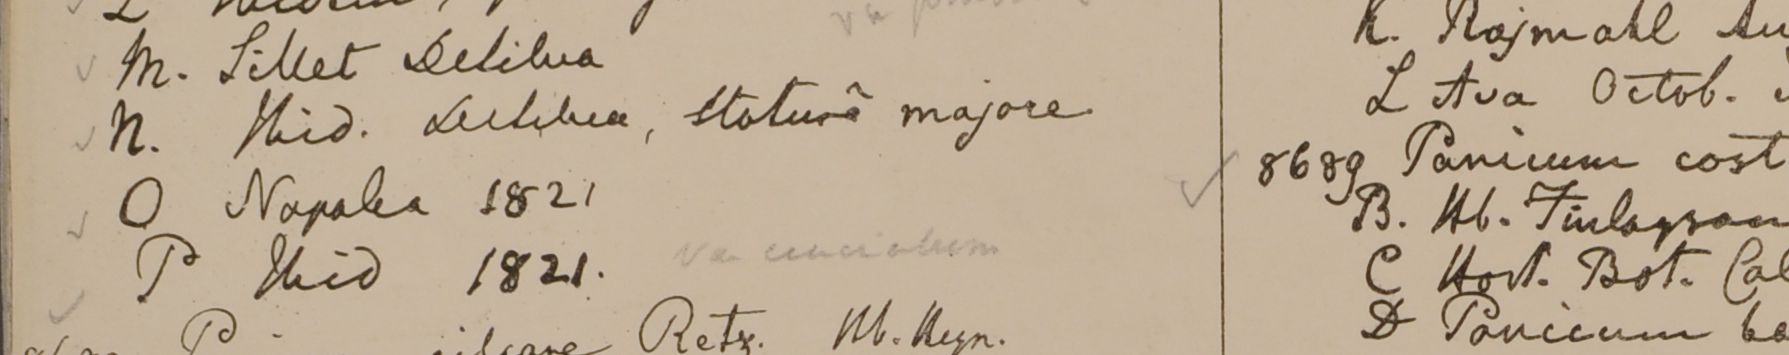 M. Sillet Desilva
N. Ibid. Desilva, staturâ majore
O Napalia 1821
P Ibid 1821.
Retz. Hb. Heyn.
K. Rajmahl
L Ava Octob.
8689 Panicum cost
B. Hb. Finlayson
C Hort. Bot. Cal
D Panicum